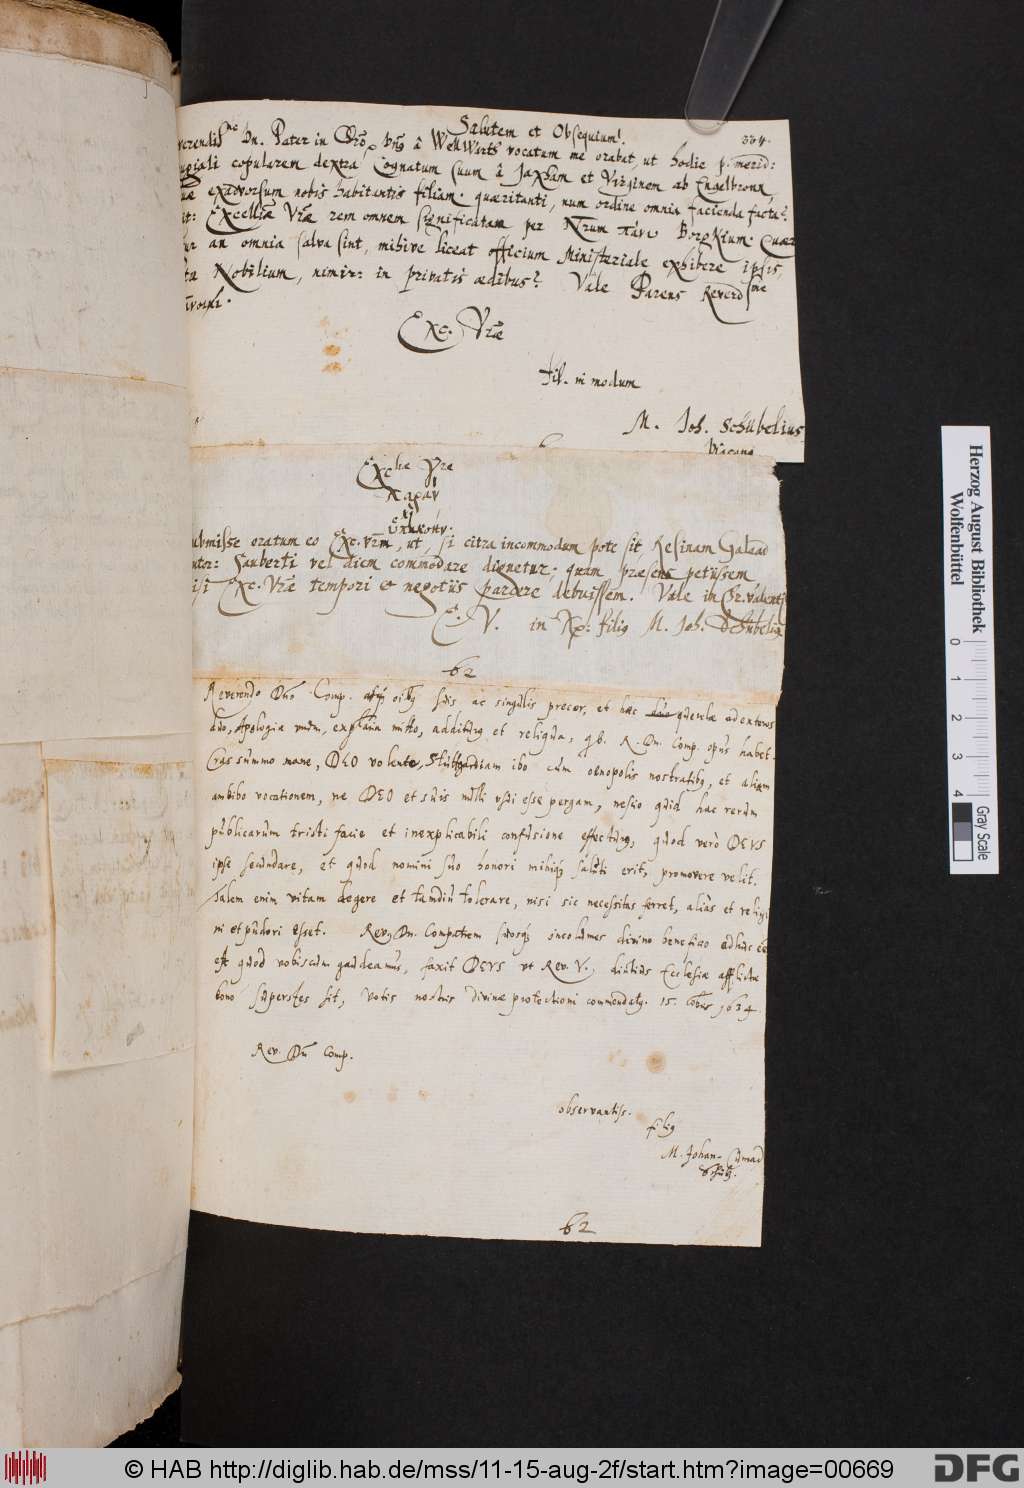 Salutem et Obsequium!
334.
Dn. Pater in Chro, Vrus â WellWarts vocatum me orabat, ut hodie p. merid:
copularem dextra Cognatum suum â Jaxham et Virginem ab Engelbronn
exadvorsum nobis habitantis filiam. quæritanti, num ordine omnia facienda facta?
Excelliæ Vræ rem omnem significatam per Borgkium. Quær
an omnia salva sint, mihive liceat officium Ministeriale exhibere ipsis,
Nobilium, nimir: in privatis ædibus? Vale Parens Reverdsme
Exc. Vræ
fil. in modum
M. Joh. Schübelius
Exc Vræ
submisse oratum eo Exc. Vrm, ut, si citra incommodum pote sit, Resinam Galaad
Sauberti vel diem commodare dignetur; quam præsens petiissem
nisi Exc. Vræ tempori et negotiis parcere debuissem. Vale in Chr. valenti
E. V. in Xp: filius M. Joh. Schübelius
62
Reverendo Dno Comp. suis ac singulis precor, et hac querelæ
duo, Apologia unum, mitto, additurus et reliqua, R. Dn. Comp. opus habet.
Cras summo mane, DEO volente, Stuttgardiam ibo cum nostratibus, et aliam
ambibo vocationem, ne DEO et suis nulli usui esse pergam, nescio quid hac rerum
publicarum tristi facie et inexplicabili confusione effecturus, quod verò DEUS
ipse secundare, et quod nomini suo honori mihique saluti erit, promovere velit.
Talem enim vitam degere et tamdiu tolerare, nisi sic necessitas ferret, alias et religi
ni et pudori esset. Rev. Dn. Compatrem suosque incolumes divino beneficio adhuc
quod vobiscum gaudeamus, faxit DEUS ut Rev. V. diutius Ecclesiæ afflictæ
bono superstes sit, votis nostris divinæ protectioni commendatus. 15. 1634.
Rev. Dn Comp.
observantiss.
filius
M. Johan-
62
Herzog August Bibliothek
Wolfenbüttel
0 1 2 3 4
Gray Scale
© HAB http://diglib.hab.de/mss/11-15-aug-2f/start.htm?image=00669
DFG